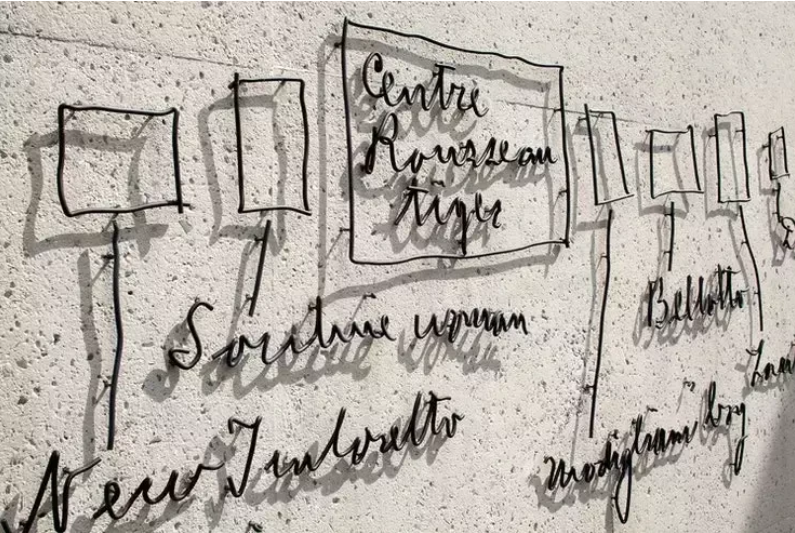 Centre
Rousseau
tiger
Soutine woman
New Tintoretto
Modigliani boy
Bellotto